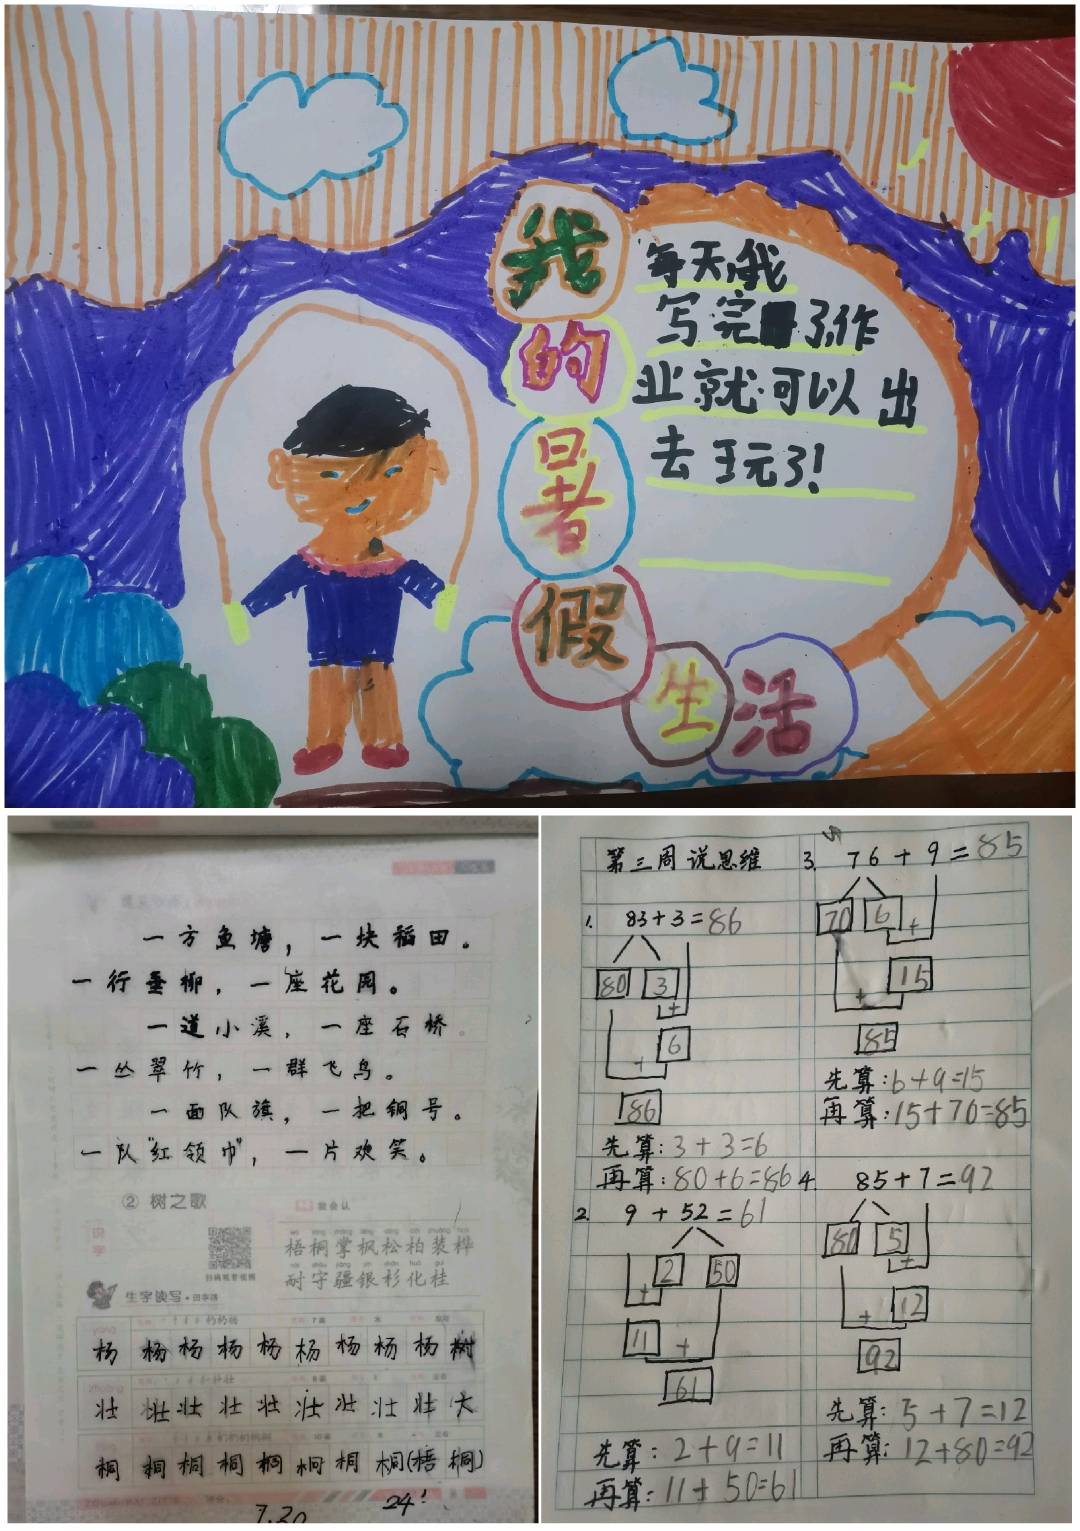 我的暑假生活
每天,我
写完了作
业就可以出
去玩了!
一方鱼塘，一块稻田。
一行垂柳，一座花园。
一道小溪，一座石桥。
一丛翠竹，一群飞鸟。
一面队旗，一把铜号。
一队“红领巾”，一片欢笑。
② 树之歌
我会认
识字
梧桐掌枫松柏装桦
耐守疆银杉化桂
扫码观看视频
生字读写·田字格
yáng
杨杨杨杨杨杨杨杨杨树
zhuàng
壮壮壮壮壮壮壮壮壮大
桐桐桐桐桐桐桐桐(梧桐)
7.20
24!
第三周说思维
1. 83+3=86
80 3
+
6
+
86
先算:3+3=6
再算:80+6=86
2. 9+52=61
2 50
+
11 +
61
先算:2+9=11
再算:11+50=61
3. 76+9=85
70 6 +
15
+
85
先算:6+9=15
再算:15+70=85
4. 85+7=92
80 5
+
12
+
92
先算:5+7=12
再算:12+80=92